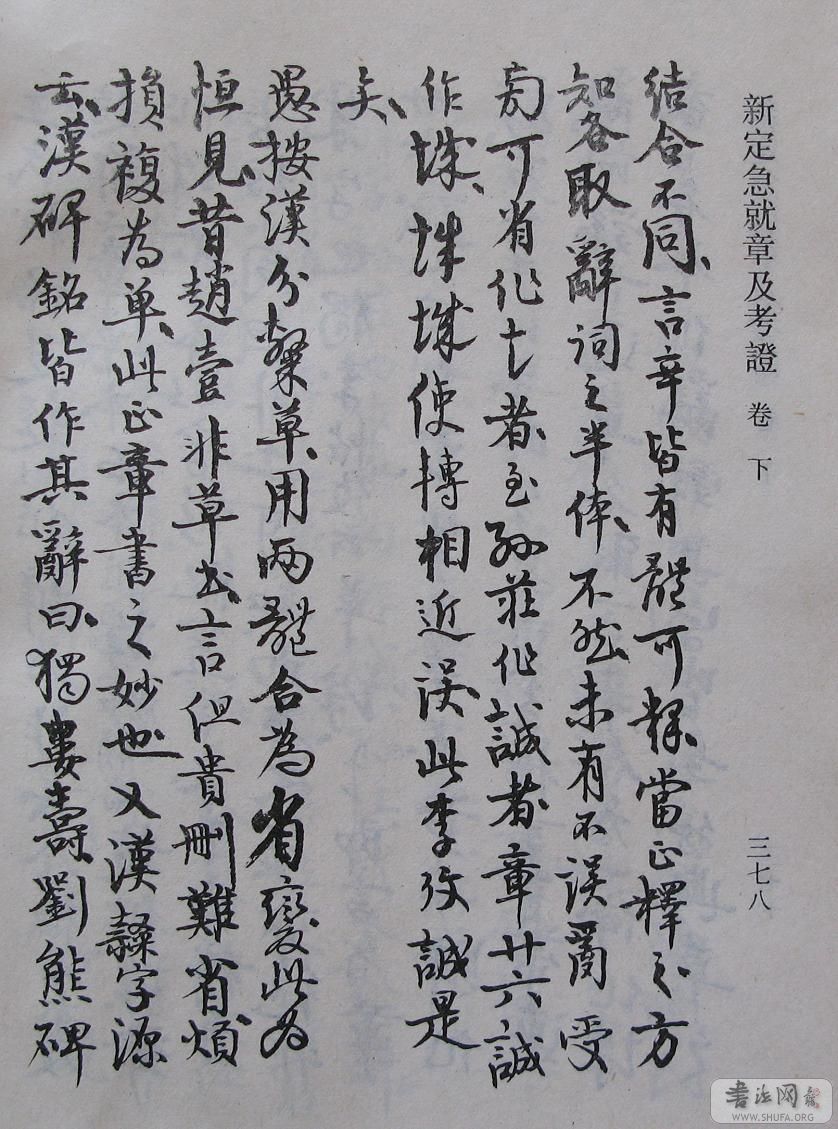 新定急就章及考證 卷下
三七八
结合不同、言辛皆有體可釋當正釋之方
知各取辭词之半体、不然未有不误𤔔受
为可省作亡者、至孙莊作誠者章廿六誠
作城、城城使轉相近误此李攷誠是
矣、
愚按漢分隸草、用两體合為省變此為
恒見、昔趙壹非草書、言但貴删難省煩
損複為单、此正章書之妙也又漢隸字源
云、漢碑銘皆作其辭曰、獨婁壽劉熊碑
書法网
WWW.SHUFA.ORG